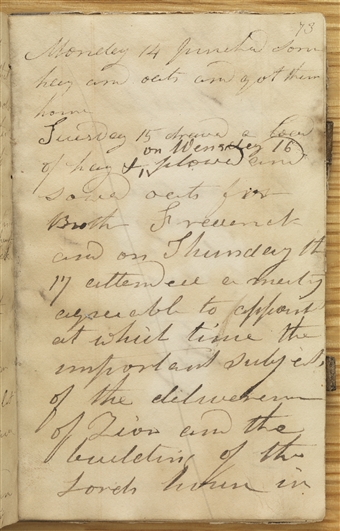 73
Monday 14 purched som
hay and oats and got them
home
Tuesday 15 drawd a load
on Wensday 16
of hay & plowd and
sowed oats for
Broth Frederick
and on Thursday th
17 attended a meetg
agreeable to appoint
at which time the
important subject
of the deliverence
of Zion and the
building of the
Lords house in